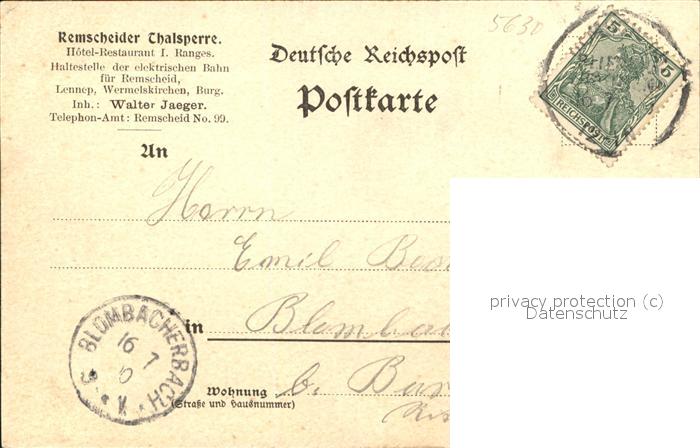 5630
Remscheider Thalsperre.
Hôtel-Restaurant I. Ranges.
Haltestelle der elektrischen Bahn
für Remscheid,
Lennep, Wermelskirchen, Burg.
Inh.: Walter Jaeger.
Telephon-Amt: Remscheid No. 99.
Deutsche Reichspost
Postkarte
5 5
REICHSPOST
An
Herrn
Emil
in
Wohnung b.
(Straße und Hausnummer)
BLOMBACHERBACH
16 7
privacy protection (c)
Datenschutz